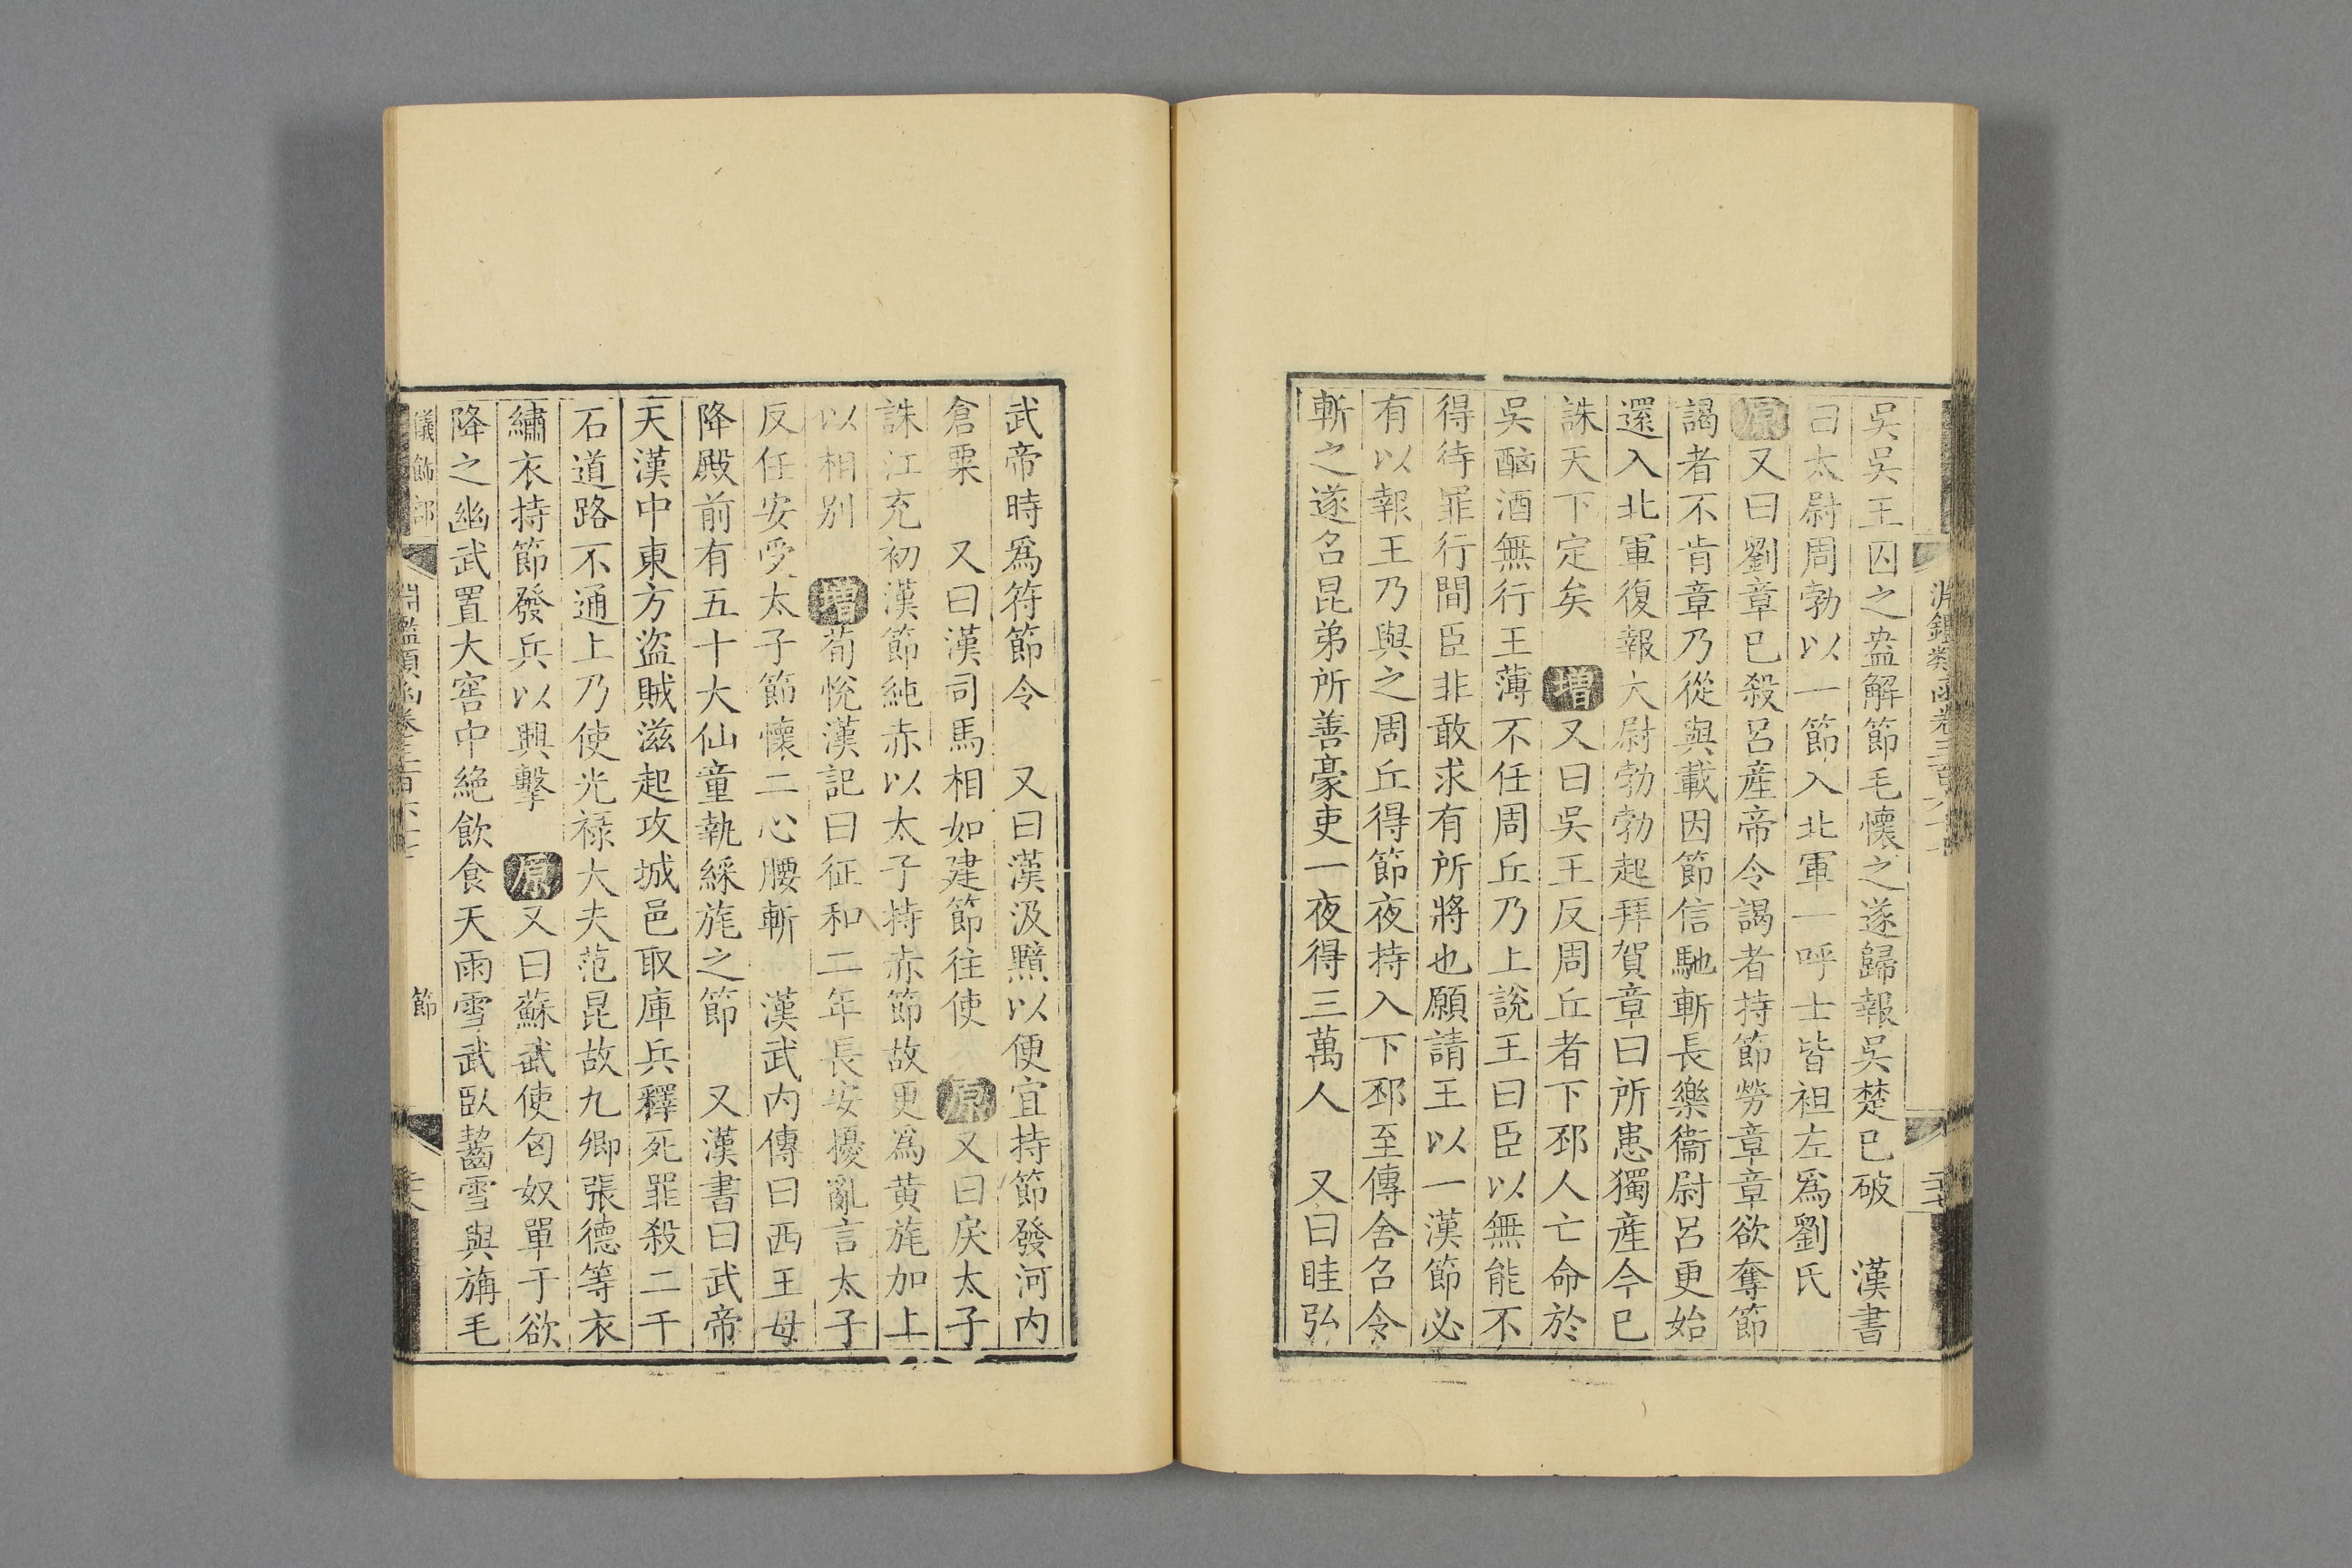 吳吳王囚之盎解節毛懷之遂歸報吳楚已破　漢書
曰太尉周勃以一節入北軍一呼士皆袒左爲劉氏
原又曰劉章已殺呂産帝令謁者持節勞章章欲奪節
謁者不肯章乃從與載因節信馳斬長樂衞尉呂更始
還入北軍復報太尉勃勃起拜賀章曰所患獨産今已
誅天下定矣　增又曰吳王反周丘者下邳人亡命於
吳酗酒無行王薄不任周丘乃上說王曰臣以無能不
得待罪行間臣非敢求有所將也願請王以一漢節必
有以報王乃與之周丘得節夜持入下邳至傳舍召令
斬之遂召昆弟所善豪吏一夜得三萬人　又曰眭弘
武帝時爲符節令　又曰漢汲黯以便宜持節發河内
倉粟　又曰漢司馬相如建節往使　原又曰戾太子
誅江充初漢節純赤以太子持赤節故更爲黄旄加上
以相别　增荀悅漢記曰征和二年長安擾亂言太子
反任安受太子節懷二心腰斬　漢武内傳曰西王母
降殿前有五十大仙童執綵旄之節　又漢書曰武帝
天漢中東方盜賊滋起攻城邑取庫兵釋死罪殺二千
石道路不通上乃使光禄大夫范昆故九卿張德等衣
繡衣持節發兵以興擊　原又曰蘇武使匈奴單于欲
降之幽武置大窖中絶飲食天雨雪武臥齧雪與旃毛
儀飾部　淵鑑類函卷三百六十七　節